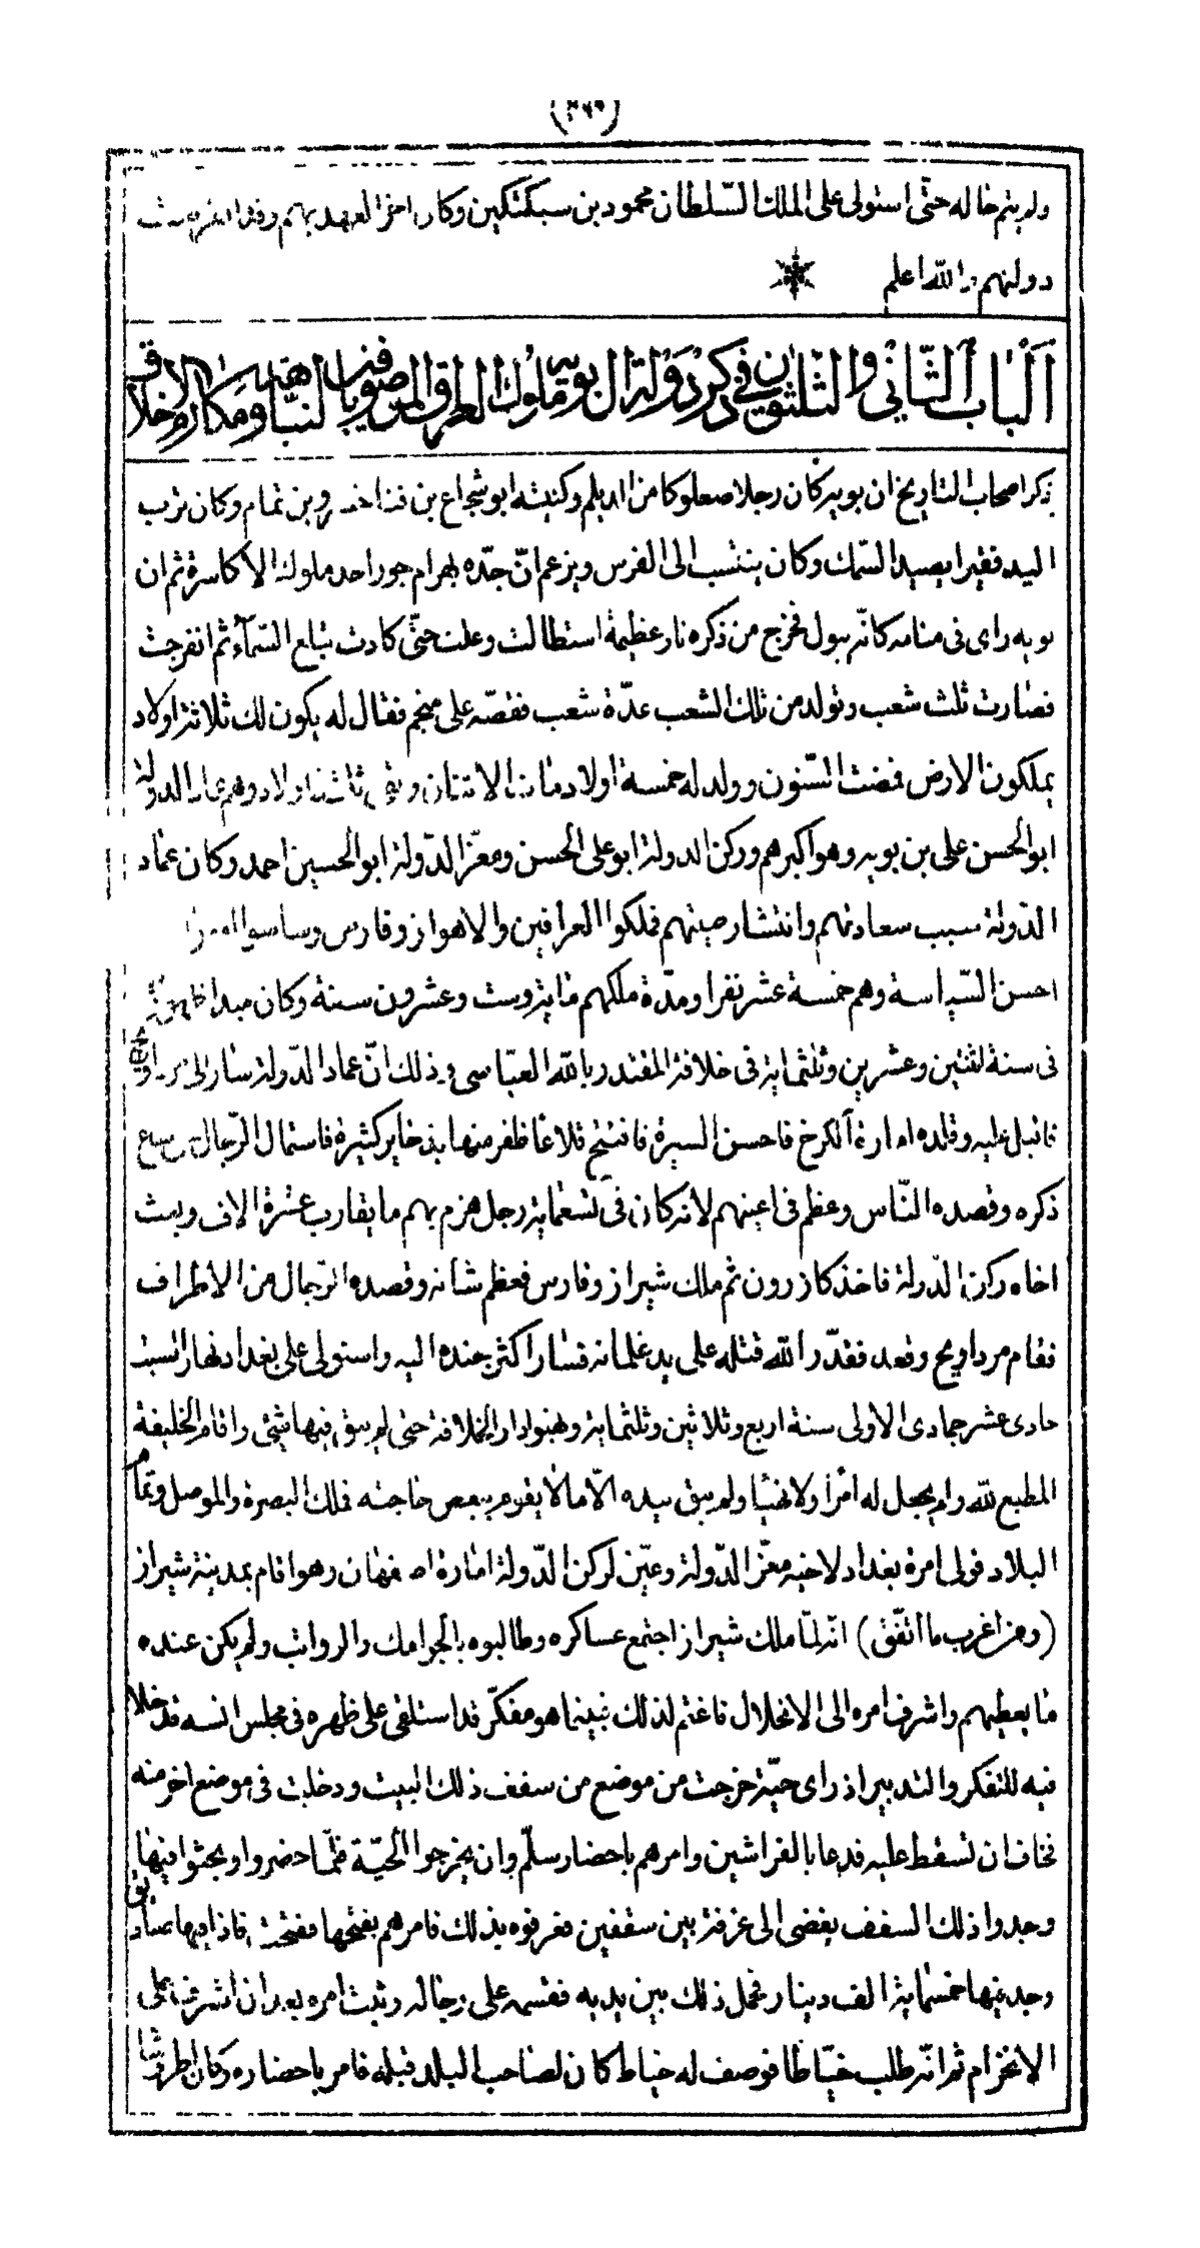 (٢٦٩)
ولم يتم حاله حتّى استولى على الملك السّلطان محمود بن سبكتكين وكان اخر العهد بهم وقد انقرضت
دولتهم والله اعلم
اَلْبابُ الثّاني والثّلثون في ذكر دولة ال بويه ملوك العراق الموصوفين بالنباهة ومكارم الاخلاق
ذكر اصحاب التاريخ ان بويه كان رجلا صعلوكا من الديلم وكنيته ابو شجاع بن فناخسرو بن تمام وكان ترب
اليد فقيرا يصيد السّمك وكان ينتسب الى الفرس ويزعم انّ جدّه بهرام جور احد ملوك الاكاسرة ثم ان
بويه راى فى منامه كانّه يبول فخرج من ذكره نار عظيمة استطالت وعلت حتّى كادت تبلغ السّمآء ثم انفرجت
فصارت ثلث شعب وتولد من تلك الشعب عدّة شعب فقصّه على منجم فقال له يكون لك ثلاثة اولاد
يملكون الارض فمضت السّنون وولد له خمسة اولاد مات الاثنان وبقى ثلاثة اولاد وهم عماد الدولة
ابو الحسن على بن بويه وهو اكبرهم وركن الدولة ابو على الحسن ومعزّ الدّولة ابو الحسين احمد وكان عماد
الدّولة سبب سعادتهم وانتشار صيتهم فملكوا العراقين والاهواز وفارس وساسوا
احسن السّياسة وهم خمسة عشر نفرا ومدّة ملكهم مائة وست وعشرون سنة وكان مبدا
فى سنة اثنتين وعشرين وثلثمائة فى خلافة المقتدر بالله العبّاسى وذلك انّ عماد الدّولة سار الى مرداويج
فاقبل عليه وقلده امارة الكرخ فاحسن السيرة فافتتح قلاعا ظفر منها بذخاير كثيرة فاستمال الرّجال
ذكره وقصده النّاس وعظم فى اعينهم لانه كان فى تسعمائة رجل هزم بهم ما يقارب عشرة الاف وبعث
اخاه ركن الدّولة فاخذ كازرون ثم ملك شيراز وفارس فعظم شانه وقصده الرّجال من الاطراف
فقام مرداويج وقعد فقدّر الله قتله على يد غلمانه فسار اكثر جنده اليه واستولى على بغداد نهار السبت
حادى عشر جمادى الاولى سنة اربع وثلاثين وثلثمائة ونهبوا دار الخلافة حتى لم يبق فيها شيئ واقام الخليفة
المطيع لله ولم يجعل له أمرا ولا نهيا ولم يبق بيده الّا مالا يقوم ببعض حاجته فملك البصرة والموصل وتمام
البلاد فولى امرة بغداد لاخيه معزّ الدّولة وعيّن لركن الدّولة امارة اصفهان وهو اقام بمدينة شيراز
(ومن اغرب ما اتّفق) انّه لمّا ملك شيراز اجتمع عساكره وطالبوه بالجوامك والرواتب ولم يكن عنده
ما يعطيهم واشرف امره الى الانحلال فاغتم لذلك فبينما هو مفكّر قد استلقى على ظهره فى مجلس انسه قد خلا
فيه للتفكر والتدبير اذ راى حيّة خرجت من موضع من سقف ذلك البيت ودخلت فى موضع اخر منه
فخاف ان تسقط عليه فدعا بالفراشين وامرهم باحضار سلّم وان يخرجوا الحيّة فلمّا حضروا وبحثوا فيها
وجدوا ذلك السقف يفضى الى غرفة بين سقفين فعرفوه بذلك فامرهم بفتحها ففتحت فاذا فيها صناديق
وجد فيها خمسمائة الف دينار فحمل ذلك بين يديه فقسمه على رجاله وثبت امره بعد ان اشرف على
الانخرام ثم انّه طلب خيّاطا فوصف له خياط كان لصاحب البلد قبله فامر باحضاره وكان اطروشا